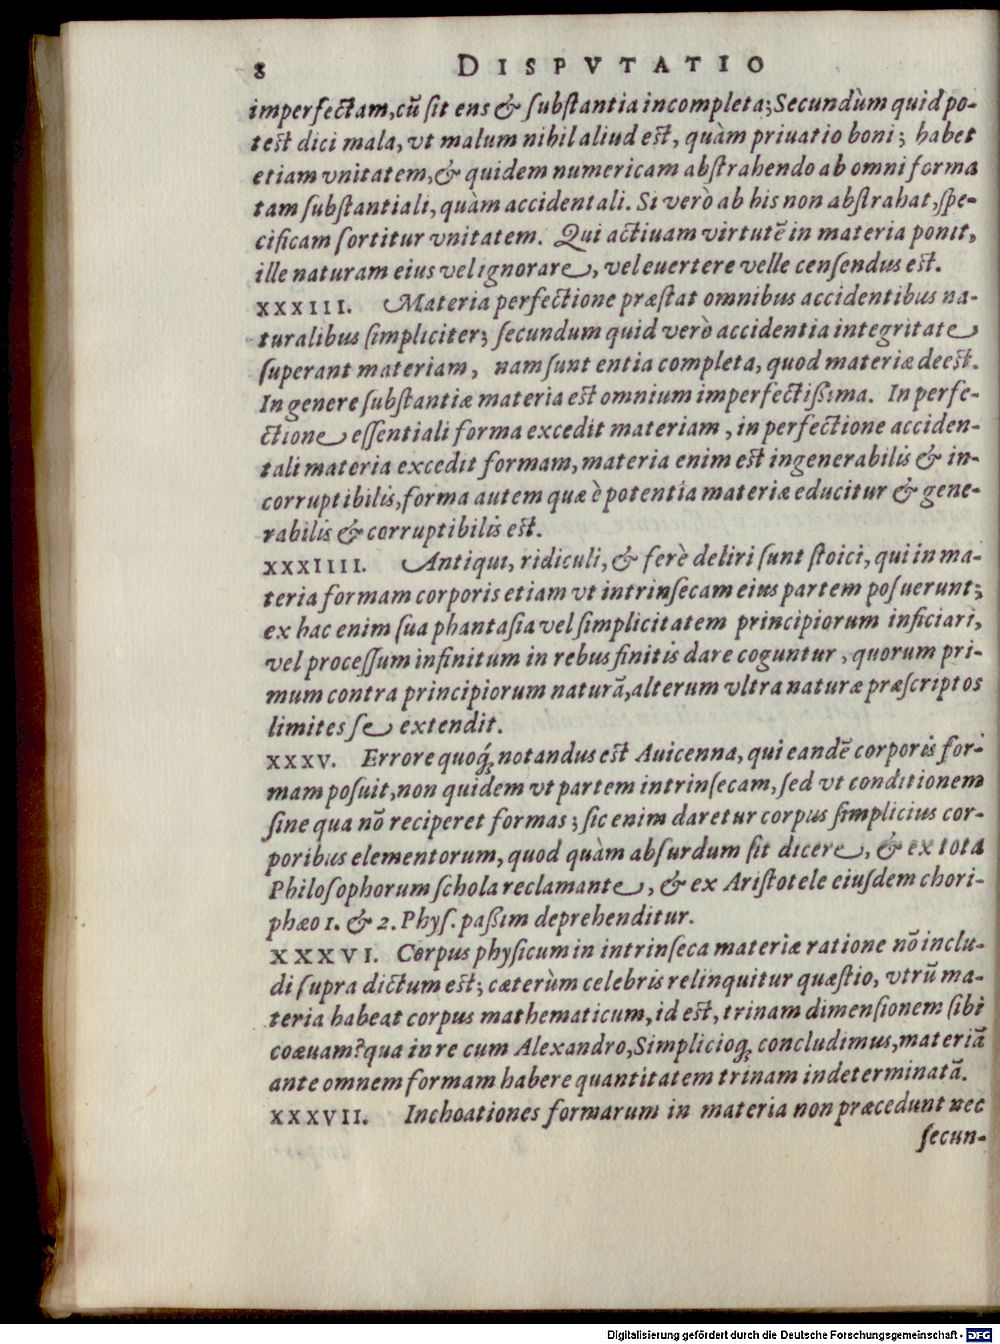 8 DISPVTATIO
imperfectam, cũ sit ens & substantia incompleta; Secundùm quid po-
test dici mala, vt malum nihil aliud est, quàm priuatio boni; habet
etiam vnitatem, & quidem numericam abstrahendo ab omni forma
tam substantiali, quàm accidentali. Si verò ab his non abstrahat, spe-
cificam sortitur vnitatem. Qui actiuam virtutẽ in materia ponit,
ille naturam eius vel ignorare, vel euertere velle censendus est.
XXXIII. Materia perfectione præstat omnibus accidentibus na-
turalibus simpliciter; secundum quid verò accidentia integritate
superant materiam, nam sunt entia completa, quod materiæ deest.
In genere substantiæ materia est omnium imperfectißima. In perfe-
ctione essentiali forma excedit materiam, in perfectione acciden-
tali materia excedit formam, materia enim est ingenerabilis & in-
corruptibilis, forma autem quæ è potentia materiæ educitur & gene-
rabilis & corruptibilis est.
XXXIIII. Antiqui, ridiculi, & ferè deliri sunt stoici, qui in ma-
teria formam corporis etiam vt intrinsecam eius partem posuerunt;
ex hac enim sua phantasia vel simplicitatem principiorum inficiari,
vel processum infinitum in rebus finitis dare coguntur, quorum pri-
mum contra principiorum naturã, alterum vltra naturæ præscriptos
limites se extendit.
XXXV. Errore quoq́; notandus est Auicenna, qui eandẽ corporis for-
mam posuit, non quidem vt partem intrinsecam, sed vt conditionem
sine qua nõ reciperet formas; sic enim daretur corpus simplicius cor-
poribus elementorum, quod quàm absurdum sit dicere, & ex tota
Philosophorum schola reclamante, & ex Aristotele eiusdem chori-
phæo 1. & 2. Phys. paßim deprehenditur.
XXXVI. Corpus physicum in intrinseca materiæ ratione nõ inclu-
di supra dictum est; cæterùm celebris relinquitur quæstio, vtrũ ma-
teria habeat corpus mathematicum, id est, trinam dimensionem sibi
coæuam? qua in re cum Alexandro, Simplicioq; concludimus, materiã
ante omnem formam habere quantitatem trinam indeterminatã.
XXXVII. Inchoationes formarum in materia non præcedunt nec
secun-
Digitalisierung gefördert durch die Deutsche Forschungsgemeinschaft - DFG